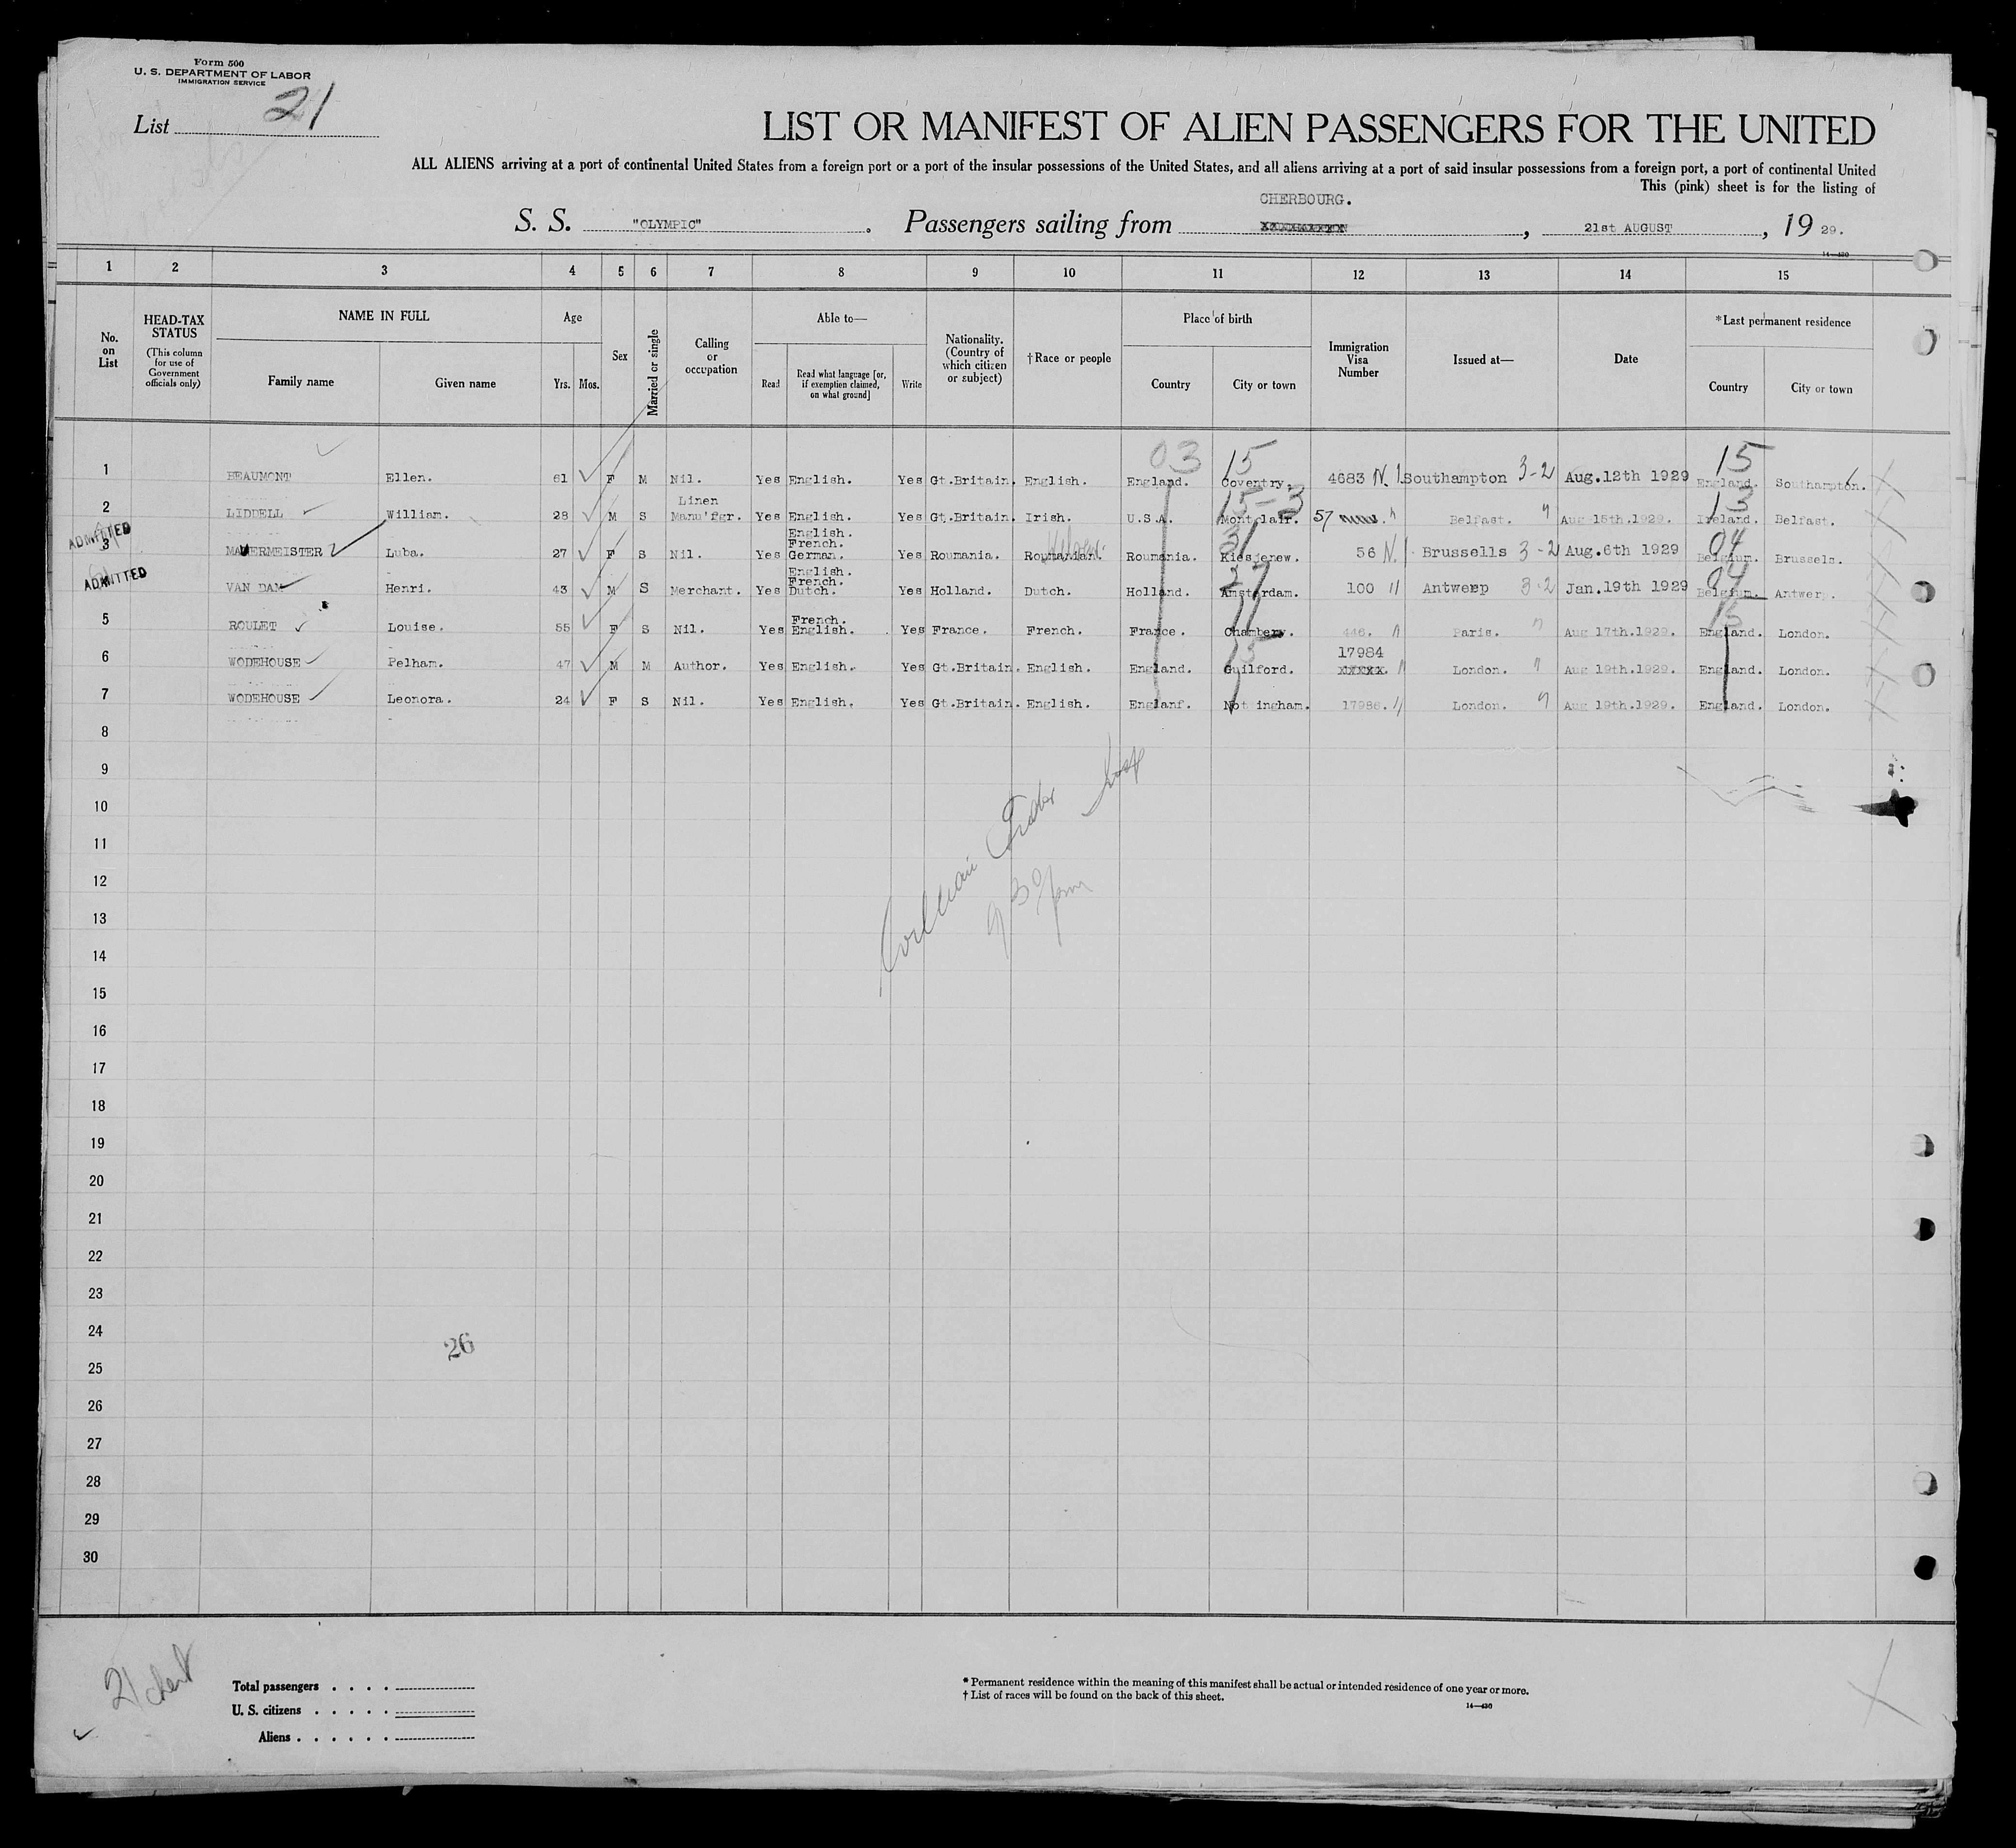 Form 500
U. S. DEPARTMENT OF LABOR
IMMIGRATION SERVICE
List 21
LIST OR MANIFEST OF ALIEN PASSENGERS FOR THE UNITED
ALL ALIENS arriving at a port of continental United States from a foreign port or a port of the insular possessions of the United States, and all aliens arriving at a port of said insular possessions from a foreign port, a port of continental United
This (pink) sheet is for the listing of
CHERBOURG.
S. S. "OLYMPIC". Passengers sailing from , 21st AUGUST, 19 29.
14—430
1 2 3 4 5 6 7 8 9 10 11 12 13 14 15
No. on List
HEAD-TAX STATUS
(This column for use of Government officials only)
NAME IN FULL
Family name
Given name
Age
Yrs. Mos.
Sex
Married or single
Calling or occupation
Able to—
Read
Read what language [or, if exemption claimed, on what ground]
Write
Nationality. (Country of which citizen or subject)
†Race or people
Place of birth
Country
City or town
Immigration Visa Number
Issued at—
Date
*Last permanent residence
Country
City or town
03 15 15
1 BEAUMONT Ellen. 61 F M Nil. Yes English. Yes Gt.Britain. English. England. Coventry. 4683 N Southampton 3-2 Aug.12th 1929 England. Southampton.
Linen 15-3 13
2 LIDDELL William. 28 M S Manu'fgr. Yes English. Yes Gt.Britain. Irish. U.S.A. Montclair. 57 Belfast. " Aug 15th.1929. Ireland. Belfast.
ADMITTED
English.
French. 31 04
3 MAYERMEISTER Luba. 27 F S Nil. Yes German. Yes Roumania. Roumanian. Roumania. Kiesjenew. 56 N. Brussells 3-2 Aug.6th 1929 Belgium. Brussels.
ADMITTED
English.
French. 27 04
VAN DAM Henri. 43 M S Merchant. Yes Dutch. Yes Holland. Dutch. Holland. Amsterdam. 100 " Antwerp 3-2 Jan.19th 1929 Belgium. Antwerp.
French. 11 15
5 ROULET Louise. 55 F S Nil. Yes English. Yes France. French. France. Chambery. 446. " Paris. " Aug 17th.1929. England. London.
15 17984
6 WODEHOUSE Pelham. 47 M M Author. Yes English. Yes Gt.Britain. English. England. Guilford. XXXXX. " London. " Aug 19th.1929. England. London.
7 WODEHOUSE Leonora. 24 F S Nil. Yes English. Yes Gt.Britain. English. Englanf. Nottingham. 17986. " London. " Aug 19th.1929. England. London.
8
9
10
11
12
13
14
15
16
17
18
19
20
21
22
23
24
26
25
26
27
28
29
30
William
9 30 pm
21
Total passengers
U. S. citizens
Aliens
* Permanent residence within the meaning of this manifest shall be actual or intended residence of one year or more.
† List of races will be found on the back of this sheet.
14—430